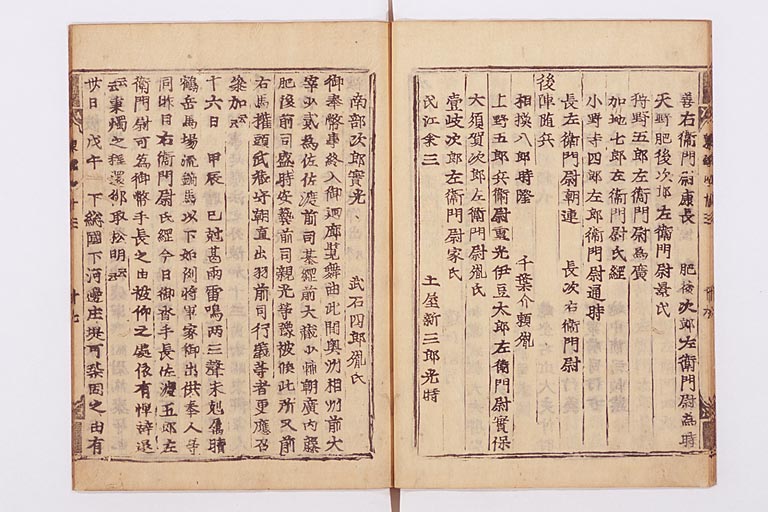 善右衛門尉康長　　肥後次郎左衛門尉為時
天野肥後次郎左衛門尉景氏
狩野五郎左衛門尉為廣
加地七郎左衛門尉氏経
小野寺四郎左衛門尉通時
長左衛門尉朝連　　長次右衛門尉
後陣随兵
相摸八郎時隆　　千葉介頼胤
上野五郎兵衛尉重光　伊豆太郎左衛門尉實保
大須賀次郎左衛門尉胤氏
壹岐次郎左衛門尉家氏
氏江余三　　土屋新三郎光時
南部次郎實光　　武石四郎胤氏
御奉幣事終入御廻廊覧舞曲此間奥州相州前大
宰少貳為佐佐渡前司基綱前大蔵少輔朝廣内藤
肥後前司盛時安藝前司親光等豫被候此所又前
右馬權頭武蔵守朝直出羽前司行義等者更應召
参加云云
十六日　甲辰　巳尅甚雨雷鳴両三聲未尅属晴
鶴岳馬場流鏑馬以下如例将軍家御出供奉人等
同昨日右衛門尉氏経今日御沓手長佐渡五郎左
衛門尉可為御幣手長之由被仰之處依有憚辞退
云云秉燭之程還御取松明云云
廿日　戊午　下総國下河邊庄堤可築固之由有
東鑑
廿七